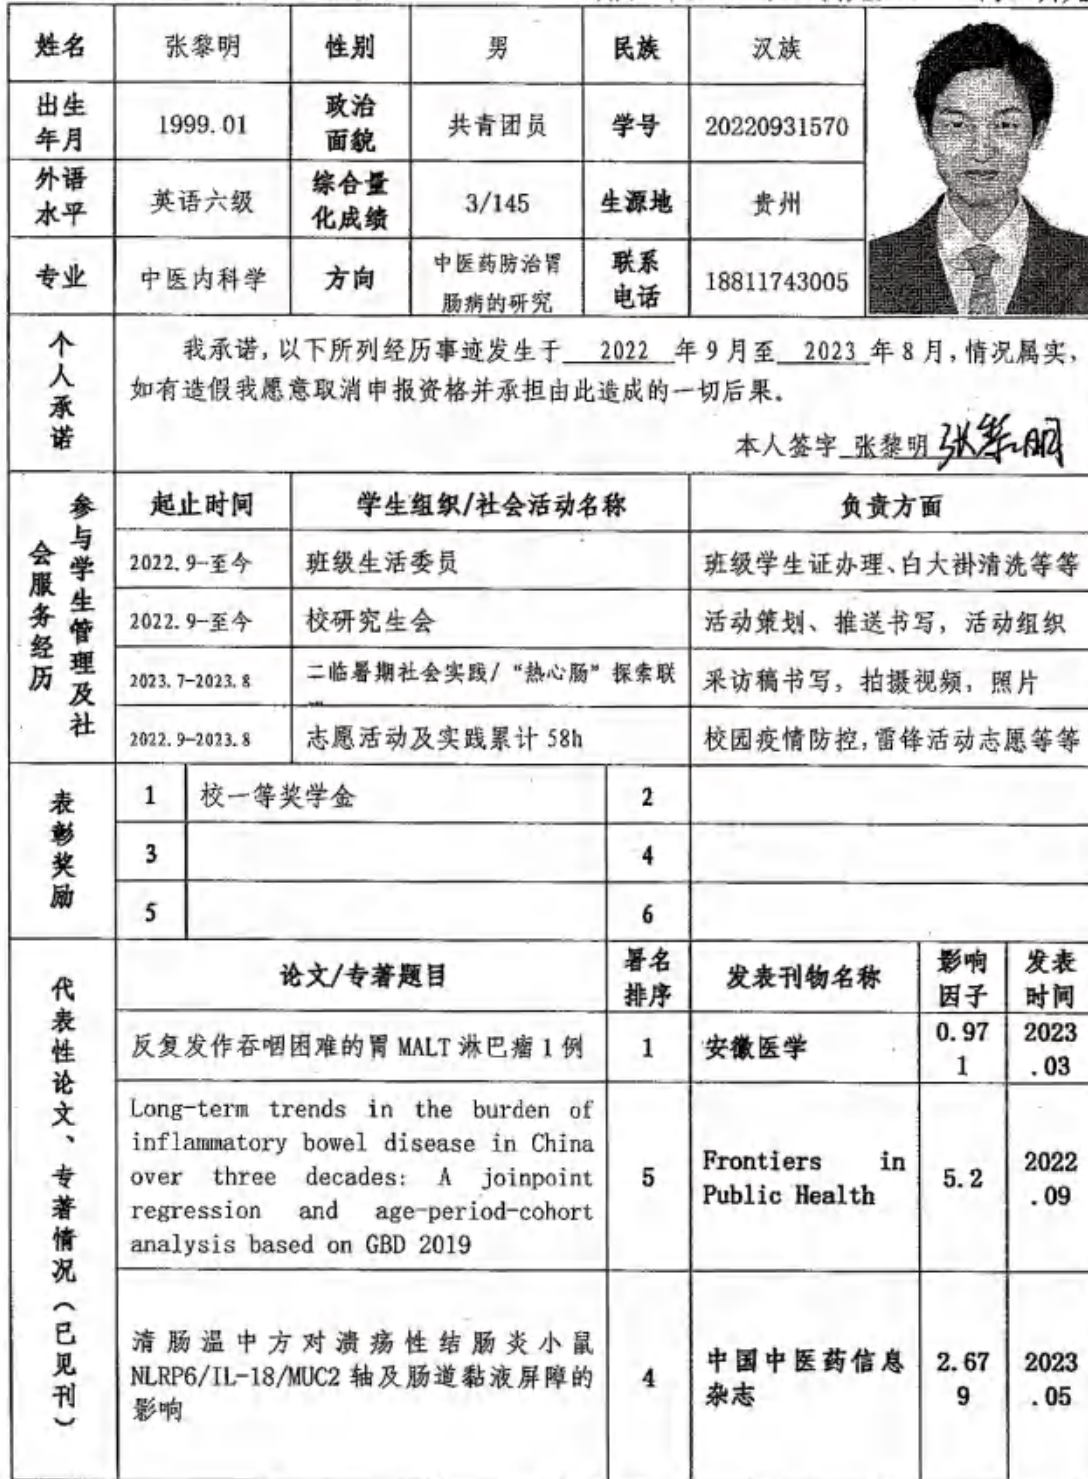 姓名 张黎明 性别 男 民族 汉族
出生年月 1999.01 政治面貌 共青团员 学号 20220931570
外语水平 英语六级 综合量化成绩 3/145 生源地 贵州
专业 中医内科学 方向 中医药防治胃肠病的研究 联系电话 18811743005
个人承诺
我承诺,以下所列经历事迹发生于 2022 年9月至 2023 年8月,情况属实,
如有造假我愿意取消申报资格并承担由此造成的一切后果。
本人签字 张黎明 张黎明
参与学生管理及社会服务经历
起止时间 学生组织/社会活动名称 负责方面
2022.9-至今 班级生活委员 班级学生证办理、白大褂清洗等等
2022.9-至今 校研究生会 活动策划、推送书写,活动组织
2023.7-2023.8 二临暑期社会实践/“热心肠”探索联 采访稿书写,拍摄视频,照片
2022.9-2023.8 志愿活动及实践累计 58h 校园疫情防控,雷锋活动志愿等等
表彰奖励
1 校一等奖学金 2
3 4
5 6
代表性论文、专著情况(已见刊)
论文/专著题目 署名排序 发表刊物名称 影响因子 发表时间
反复发作吞咽困难的胃 MALT 淋巴瘤 1 例 1 安徽医学 0.971 2023.03
Long-term trends in the burden of
inflammatory bowel disease in China
over three decades: A joinpoint
regression and age-period-cohort
analysis based on GBD 2019
5 Frontiers in Public Health 5.2 2022.09
清肠温中方对溃疡性结肠炎小鼠
NLRP6/IL-18/MUC2 轴及肠道黏液屏障的
影响
4 中国中医药信息杂志 2.679 2023.05